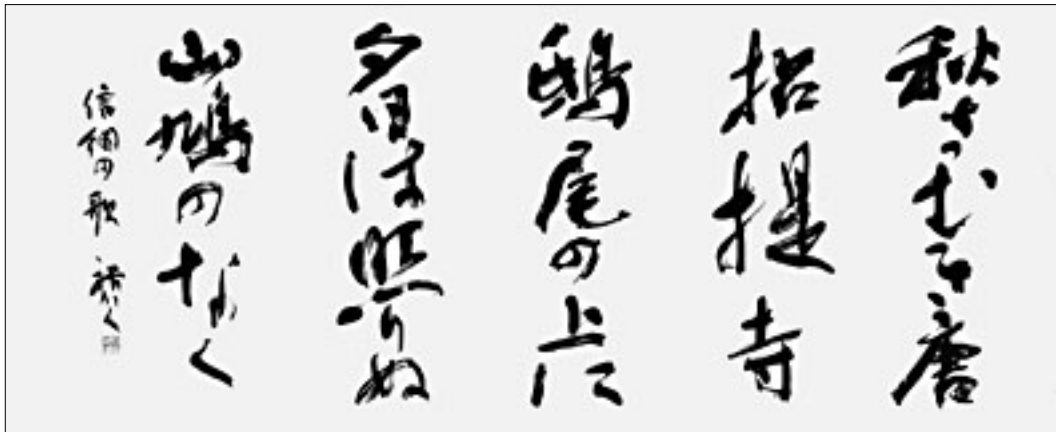 秋さむき唐
招提寺
鵄尾の上に
夕日は照りぬ
山鳩のなく
信綱の歌